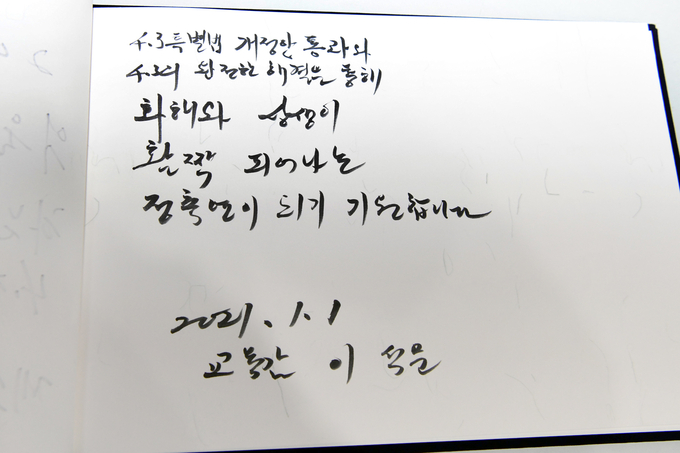 4.3특별법 개정안 통과와
4.3의 완전한 해결을 통해
화해와 상생이
활짝 피어나는
신축년이 되기 기원합니다
2021. 1. 1
교육감 이석문